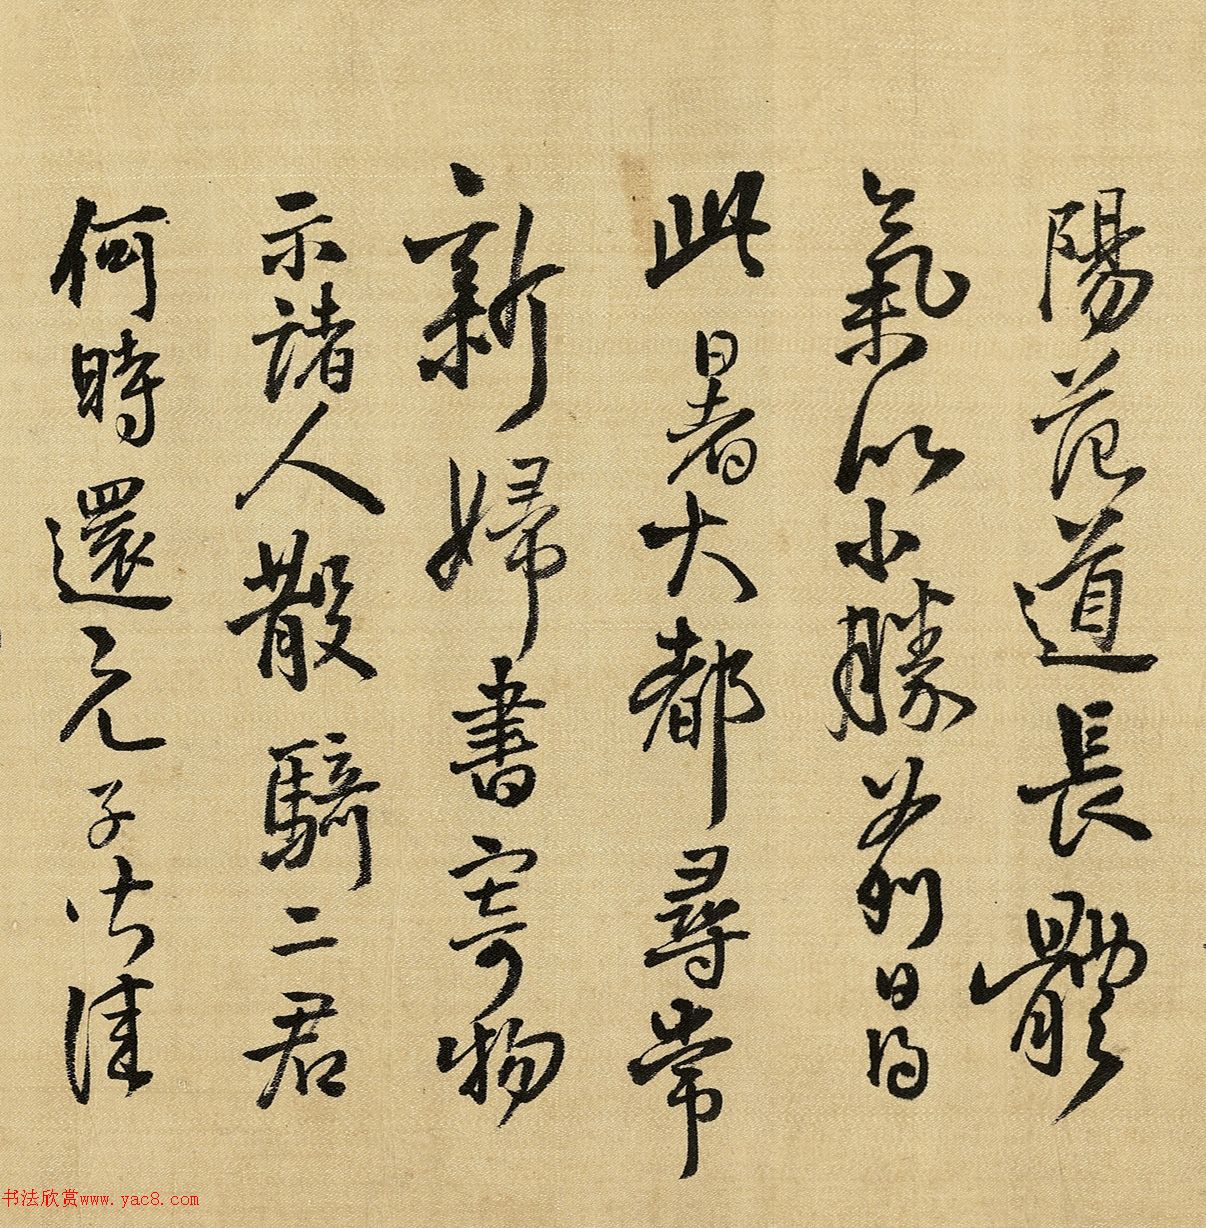 陽范道長體
氣似小勝前日得
此暑大都尋常
新婦書寄物
示諸人散騎二君
何時還元子皆佳
书法欣赏www.yac8.com